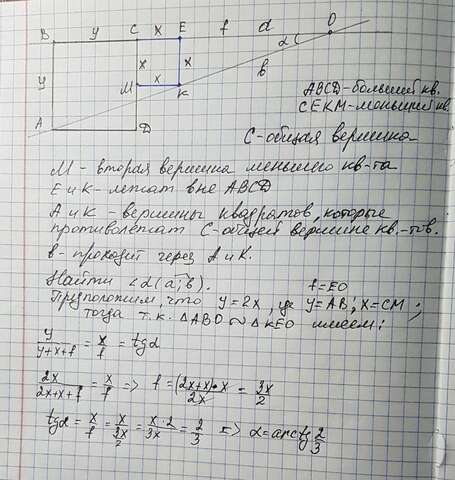 B y C x E f a O
α
y x x в
M x K
A D
ABCD - больший кв.
CEKM - меньший кв
C - общая вершина
M - вторая вершина меньшего кв-та
E и K - лежат вне ABCD
A и K - вершины квадратов, которые
противолежат C - общей вершине кв.-тов.
в - проходит через A и K.
Найти ∠α(a;в). f = EO
Предположим, что y = 2x, где y = AB; x = CM;
тогда т.к. ΔABO ∾ ΔKEO имеем:
y/(y+x+f) = x/f = tgα
2x/(2x+x+f) = x/f => f = (2x+x)·x/2x = 3x/2
tgα = x/f = x/(3x/2) = x·2/3x = 2/3 => α = arctg 2/3